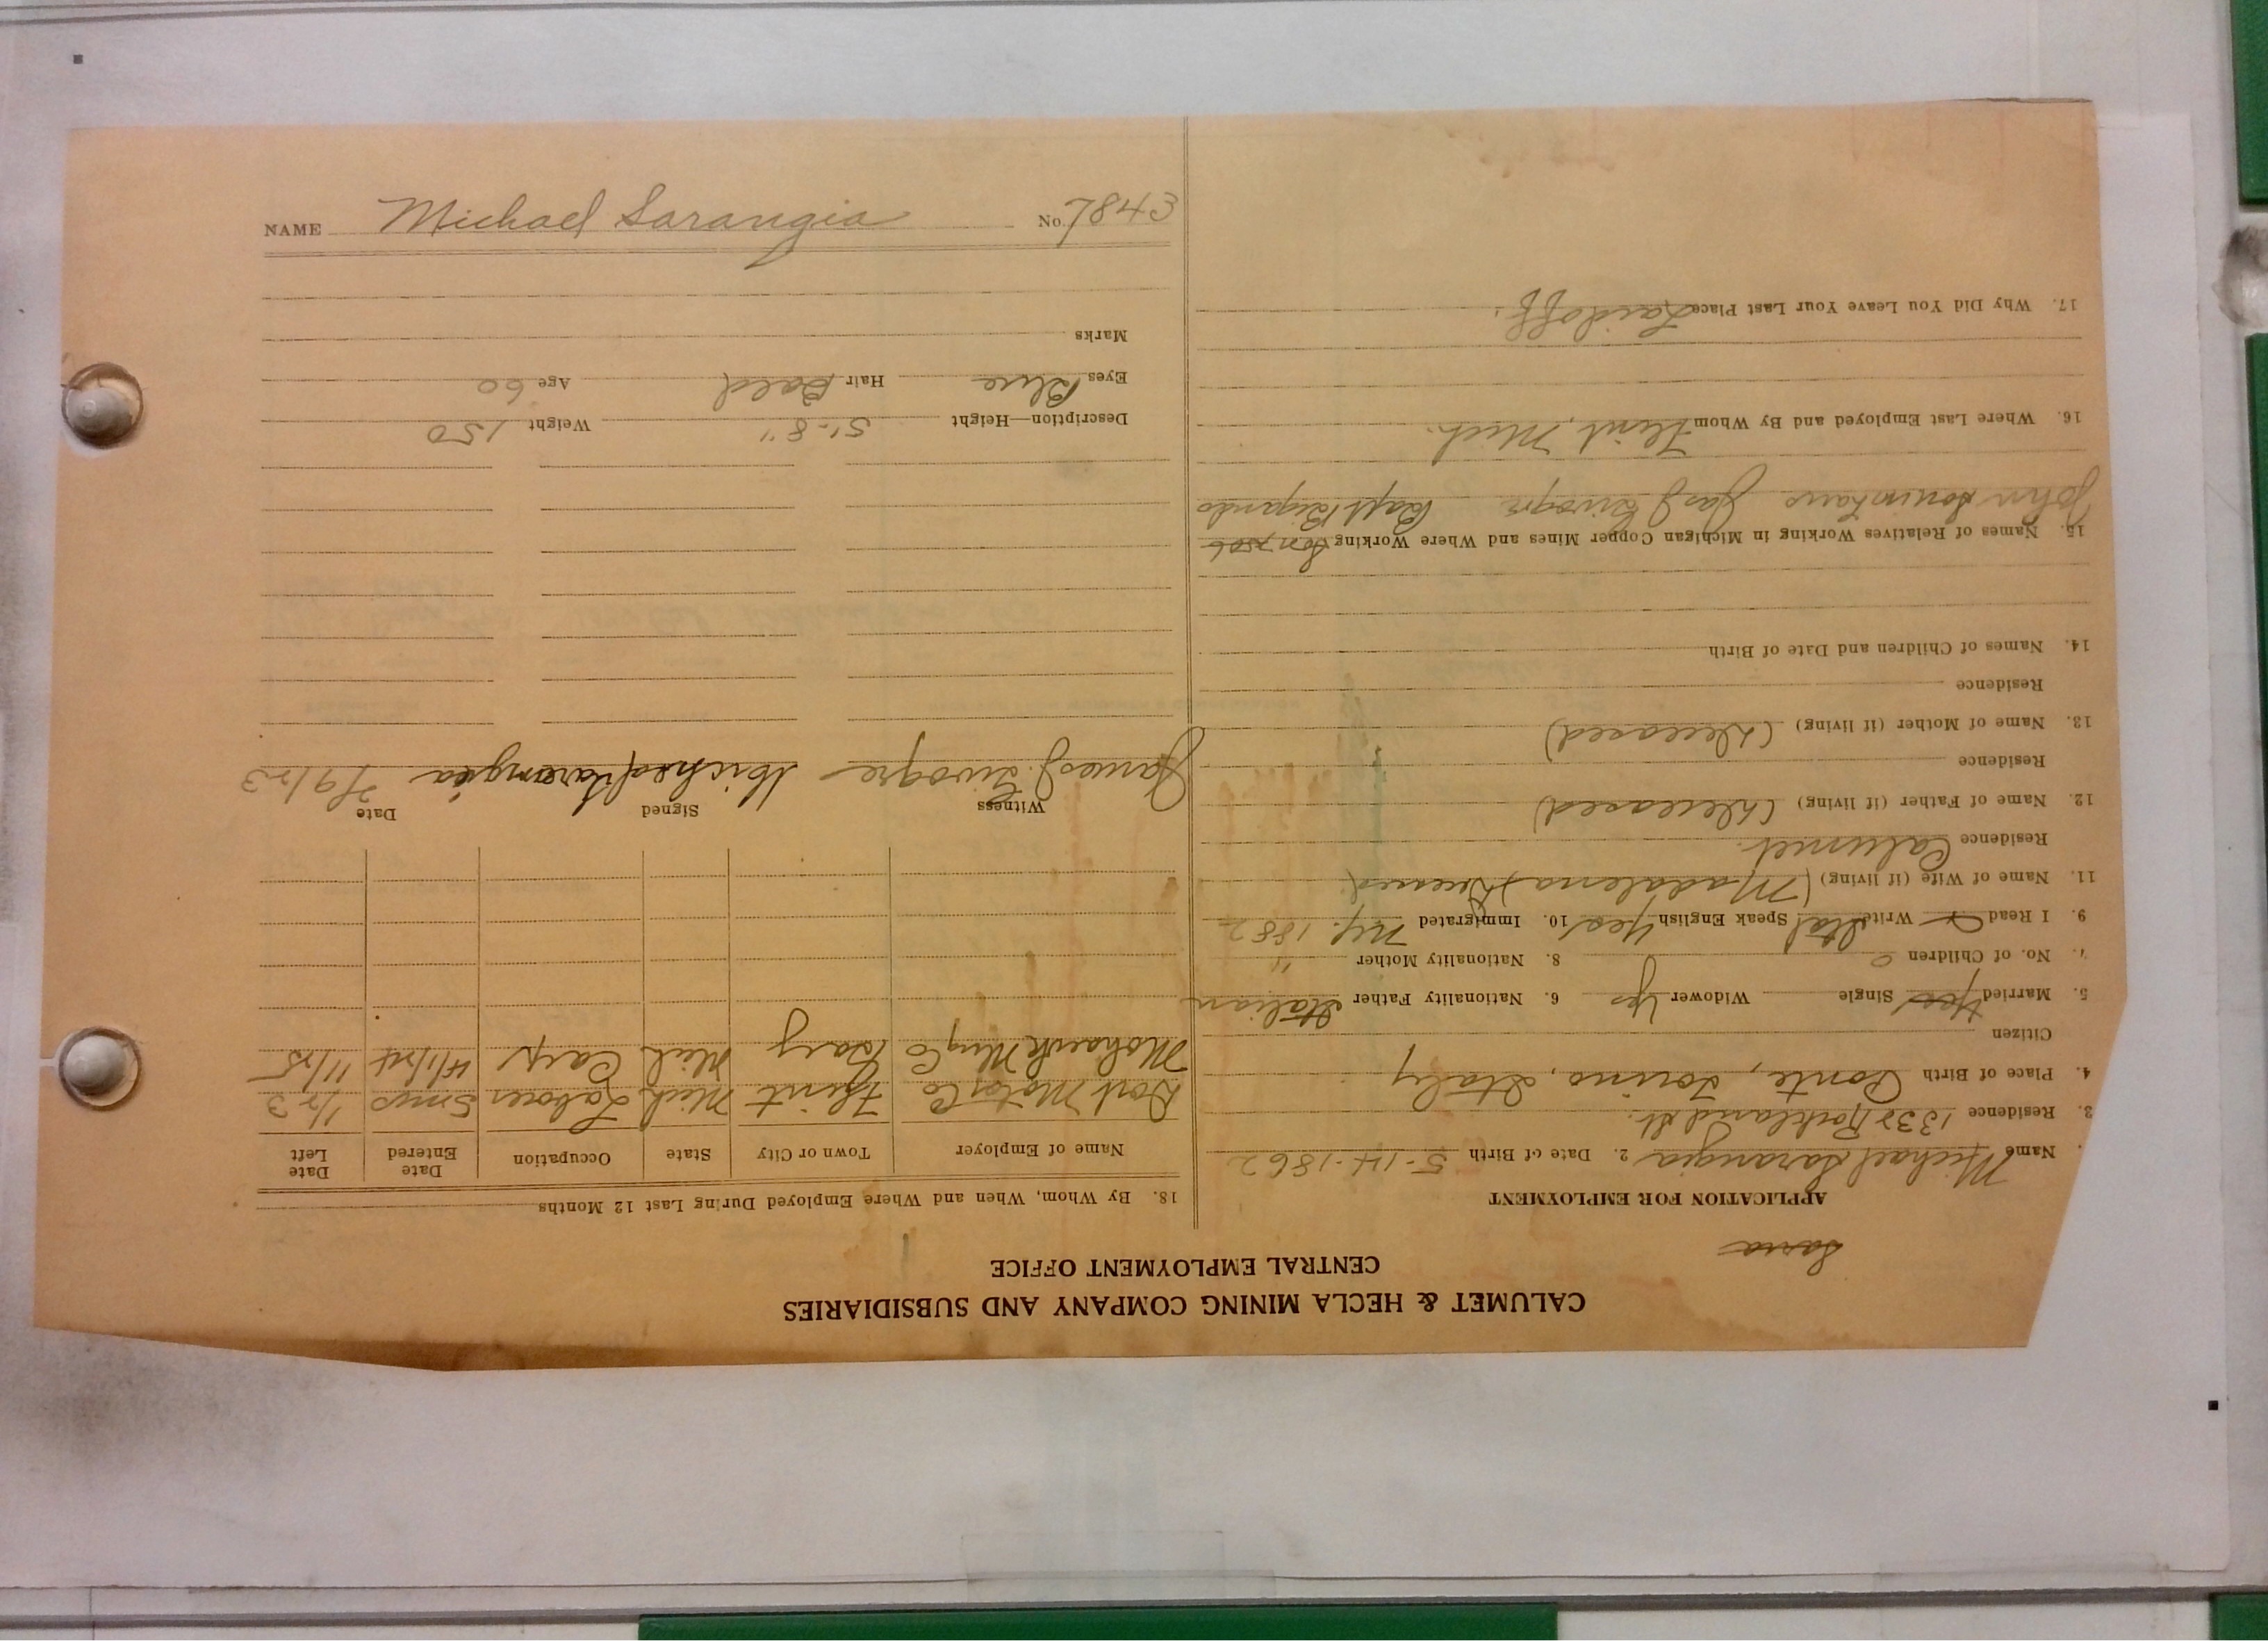 NAME Michael Sarangia No. 7843
CALUMET & HECLA MINING COMPANY AND SUBSIDIARIES
CENTRAL EMPLOYMENT OFFICE
APPLICATION FOR EMPLOYMENT
Name Michael Sarangia 2. Date of Birth 5-14-1862
3. Residence 1338 Rockland St.
4. Place of Birth Ponte, Torino, Italy
Citizen
5. Married Yes Single Widower Yes 6. Nationality Father Italian
7. No. of Children 0 8. Nationality Mother "
9. I Read Write Ital Speak English Yes 10. Immigrated N.Y. 1882
11. Name of Wife (if living) (Madalena) Deceased
Residence Calumet
12. Name of Father (if living) (Deceased)
Residence
13. Name of Mother (if living) (Deceased)
Residence
14. Names of Children and Date of Birth
15. Names of Relatives Working in Michigan Copper Mines and Where Working
John Jas J Givogre Bapt
16. Where Last Employed and By Whom Flint, Mich.
17. Why Did You Leave Your Last Place Laid off.
18. By Whom, When and Where Employed During Last 12 Months
Name of Employer Town or City State Occupation Date Entered Date Left
Dort Motor Co Flint Mich Laborer 5 mos 1/23
Mohawk Mng Co Mich 4/1/24 11/25
Witness Signed Date
James J. Givogre Michael Sarangia 7/9/23
Description—Height 5'-8" Weight 150
Eyes Blue Hair Bald Age 60
Marks